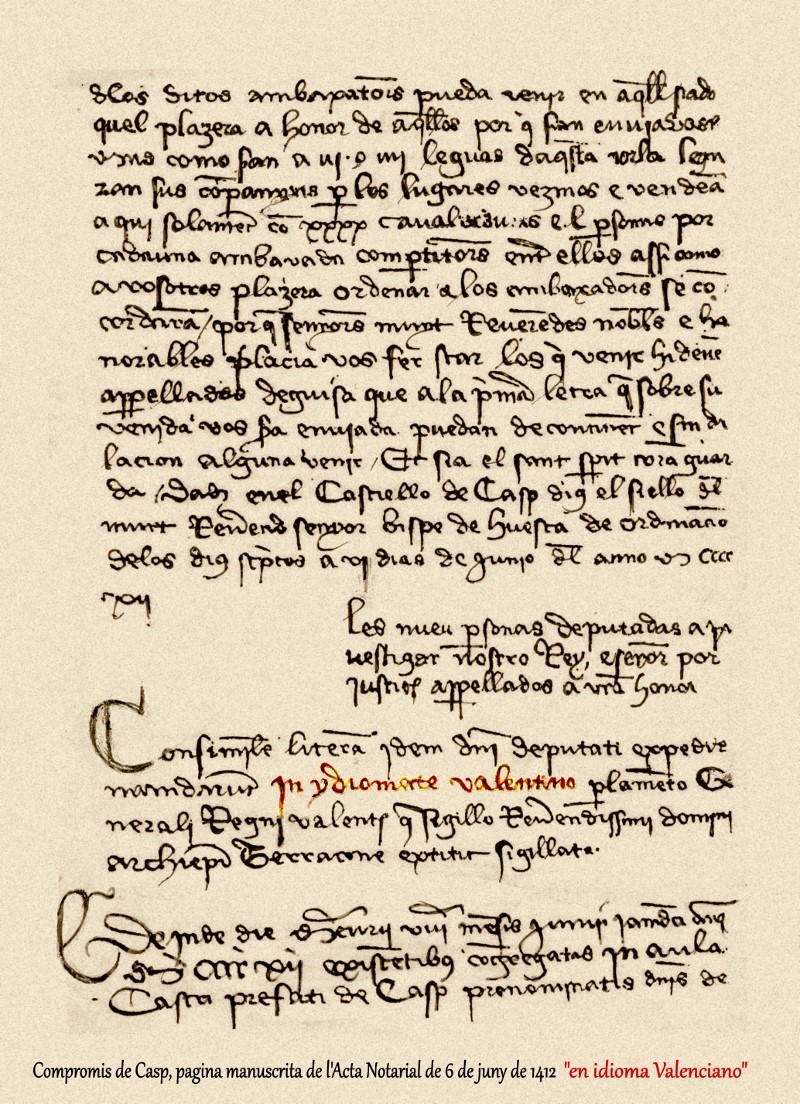 dlos ditos ambaxators pueda venir en aqll stado
quel plazera a honor de aqllos por q san enviados
como san a iij o iiij leguas daqsta vila
sus copanyas p los lugares vezinos e
a qui solament co xxxx cavalcaduras e l psonas por
cadauna ambaxada competitors entre ellos assi como
a vosotros plazera ordenar a los embaxadors se co
cordara / porq senyors muyt Reverendes nobles e ho
norables placia vos fer star los q venir
appellados deguisa que a la pma letra q sobre su
venida vos sia enviada puedan de continent e sin di
lacion alguna venir / Et sia el sant spit guar
da / Dada en el Castiello de Casp dius el siello dl
muyt Revend senyor bispe de Huesca de ordinacio
delos dius scptos a vj dias de Junio dl anno
xij
Les nueu psonas deputadas a in
vestigar nostro Rey, e senyor por
justicia appellados a vra honor
Consimile litera idem dni deputati expedire
mandarunt in ydiomate valentino plameto Ge
nerali Regni valentie q sigillo Revendissimi domini
archiepi Terracone extitit sigillata.
De inde die mesis Junii
CCCC xii existetibus cogregatis in aula
Castri prefati de Casp prenominatis dnis de
Compromis de Casp, pagina manuscrita de l'Acta Notarial de 6 de juny de 1412 "en idioma Valenciano"